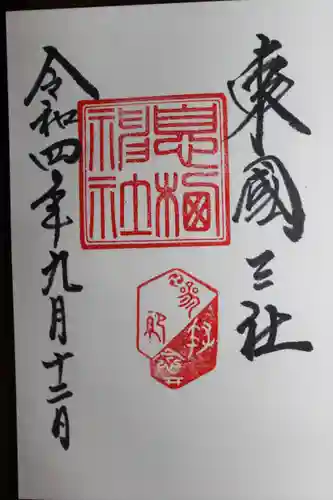 東國三社
息栖神社
令和四年九月十二日